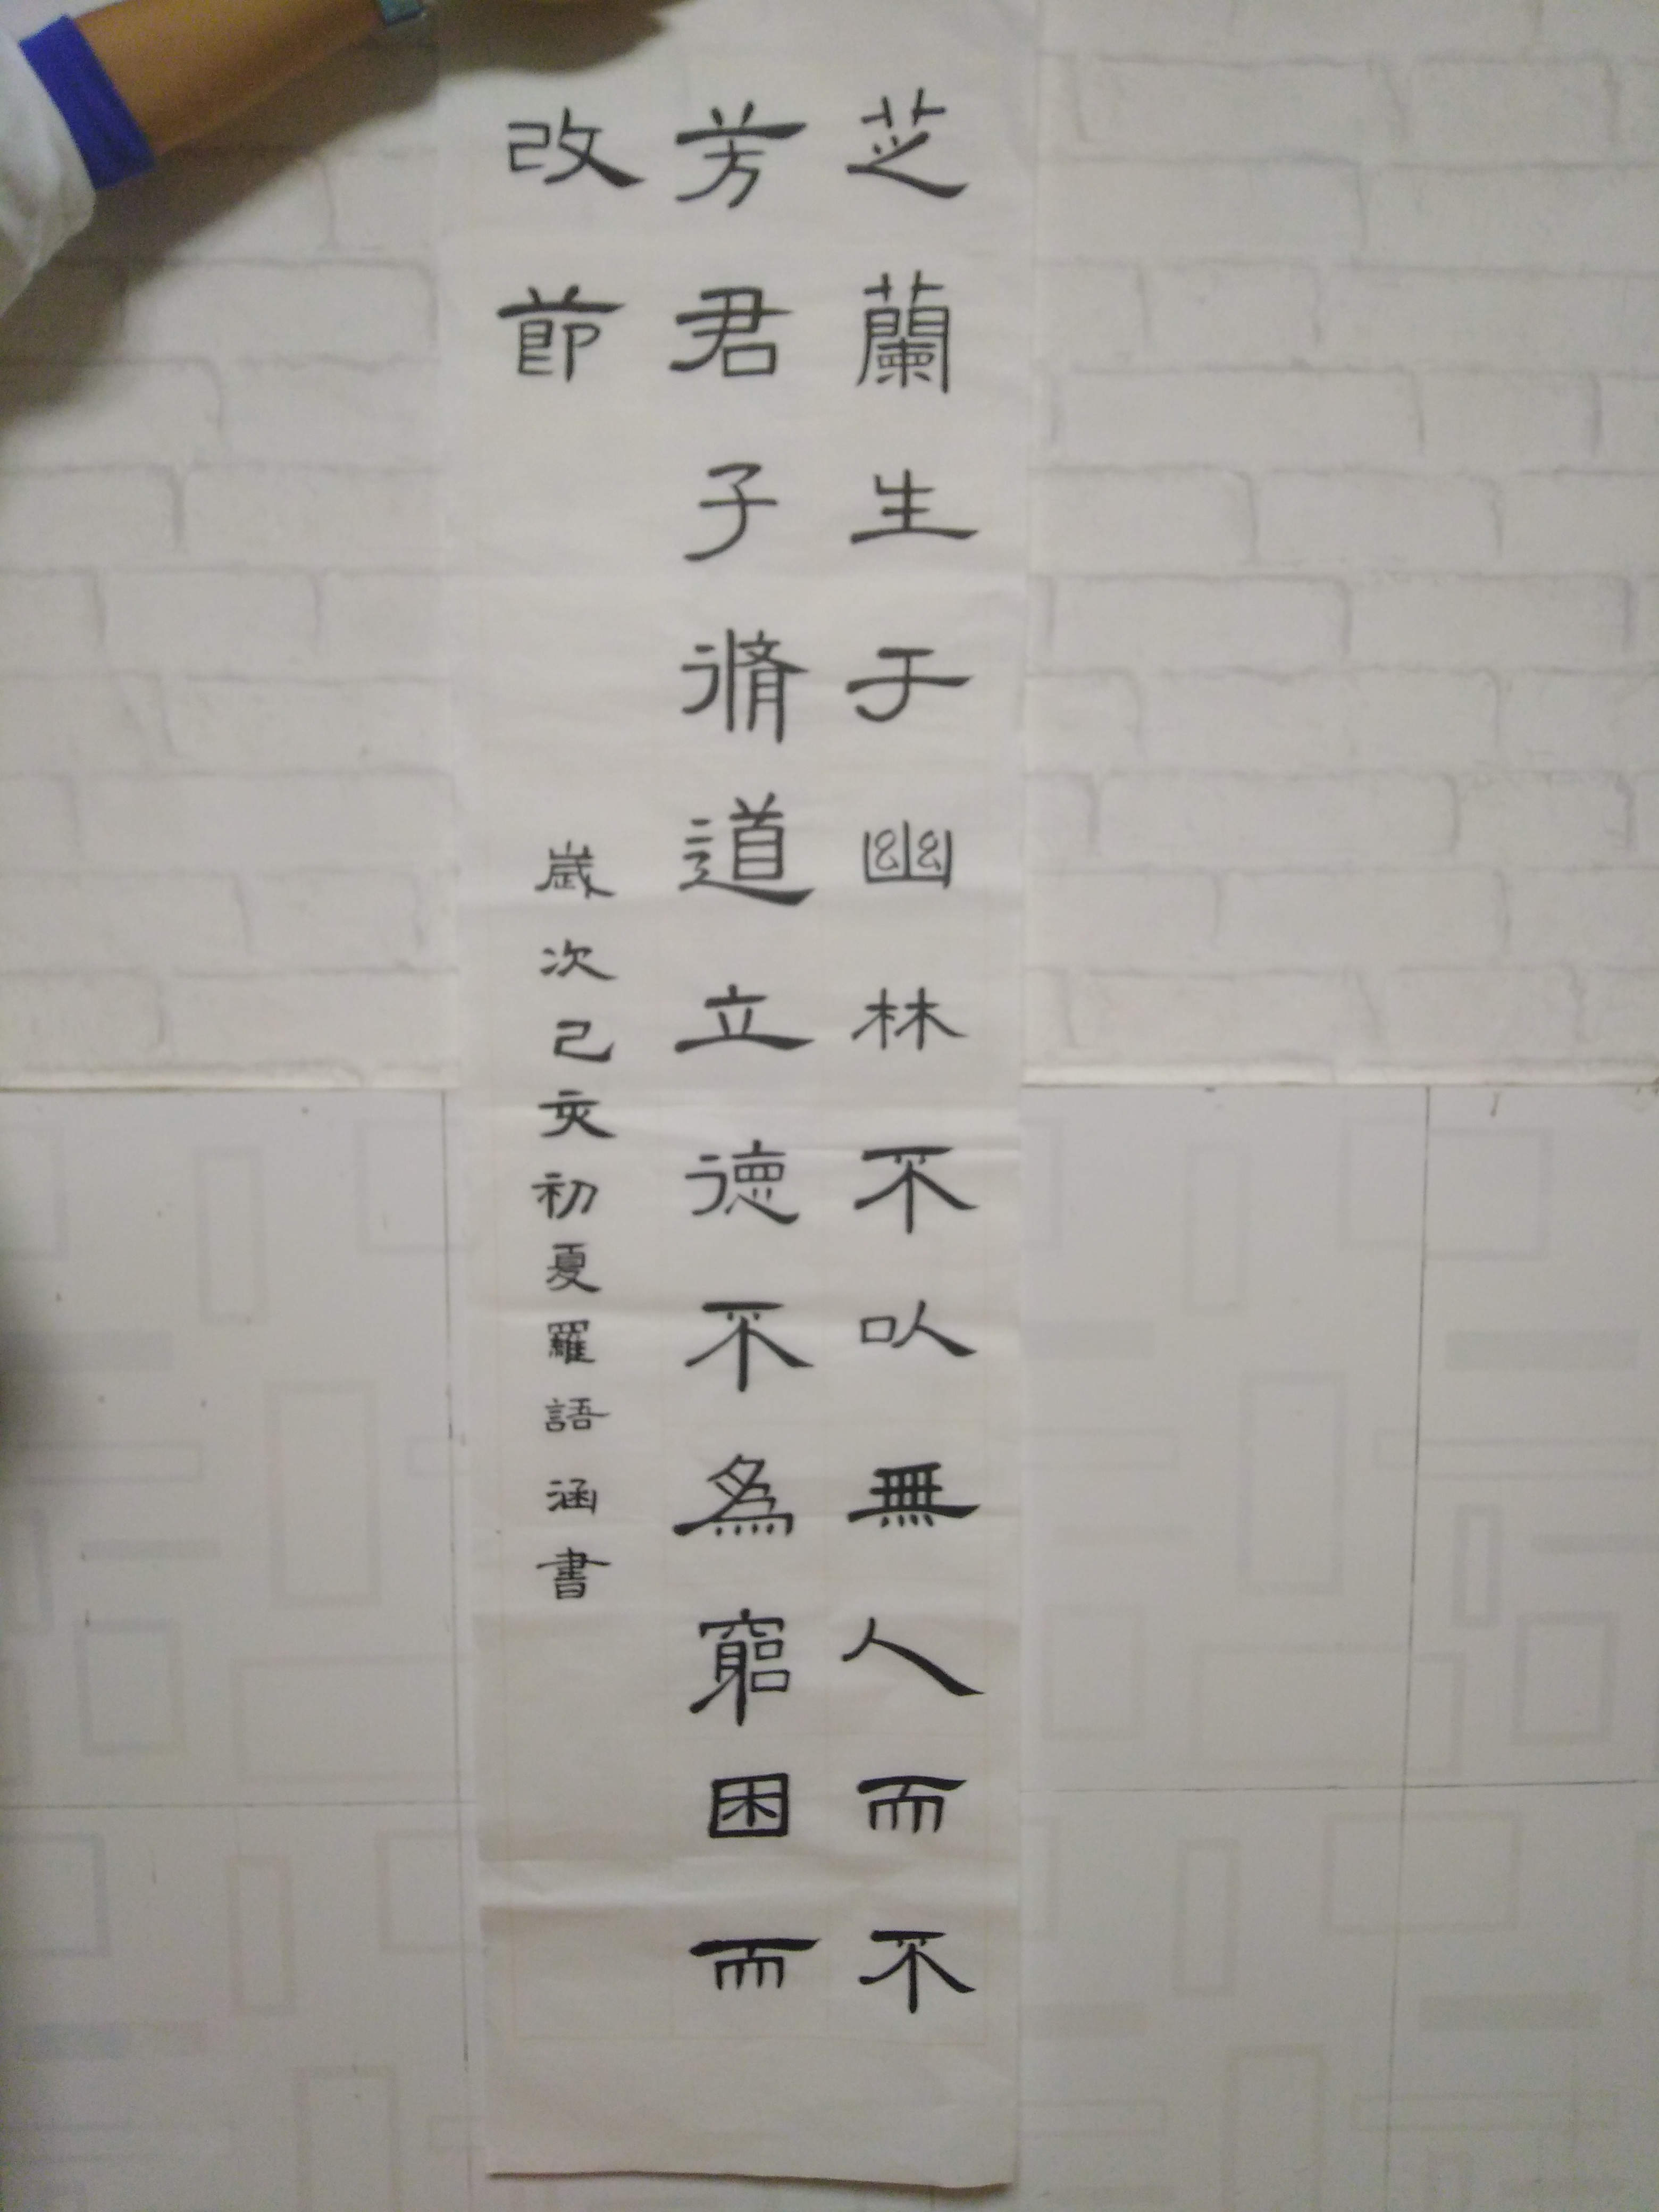 芝蘭生于幽林不以無人而不
芳君子脩道立德不為窮困而
改節
歲次己亥初夏羅語涵書